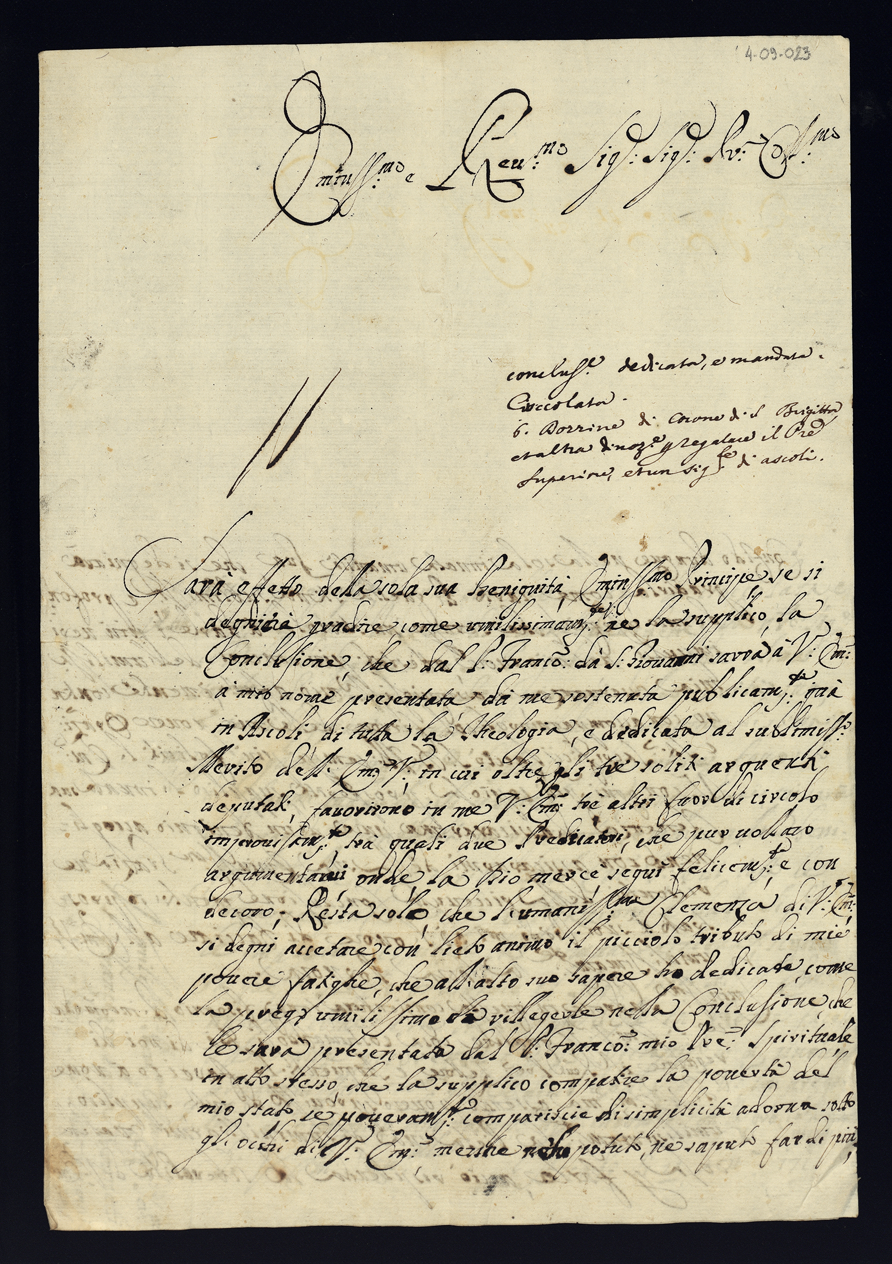 4-09-023
Em:tissmo e Reu:mo Sig:r Sig:r Pr: Col:mo
conclus:e dedicata, e mandata.
Cioccolata.
6. Dozzine di Corone di S. Brigitta
et altra dinoz:e p regalare il Pre
Superiore, et un sig:re di ascoli.
Sarà effetto della sola sua benignità Eminss:mo Principe se si
degnirà gradire come umilissimam:te ne la supplico, la
Conclusione, che dal P: Franco: da S: Giovanni sarrà à V: Em:
à mio nome presentata da me sostenuta publicam:te quà
in Ascoli di tutta la Theologia, e dedicata al sublimiss:o
Merito dell: Em: V: in cui oltre gli tre soliti arguenti
deputati, favorirono in me V: Em: tre altri fuor di circolo
improuisam:te tra quali due Predicatori, che pur uollaro
argumentarui onde, la Dio mercè seguì felicem:te e con
decoro; Resta solo che l'umaniss:ma Clemenza di V: Em:
si degni accetare con lieto animo il picciolo tributo di mie
pouere fatighe, che all'alto suo sapere ho dedicate, come
la prego umilissimo di rillegerle nella Conclusione, che
le sarà presentata dal P: Franco: mio Pre: Spirituale
in atto stesso che la supplico compatire la pouertà del
mio stato se poueram:te comparisce di simplicità adorna sotto
gl'occhi di V: Em: mentre potuto, ne saputo far di più,